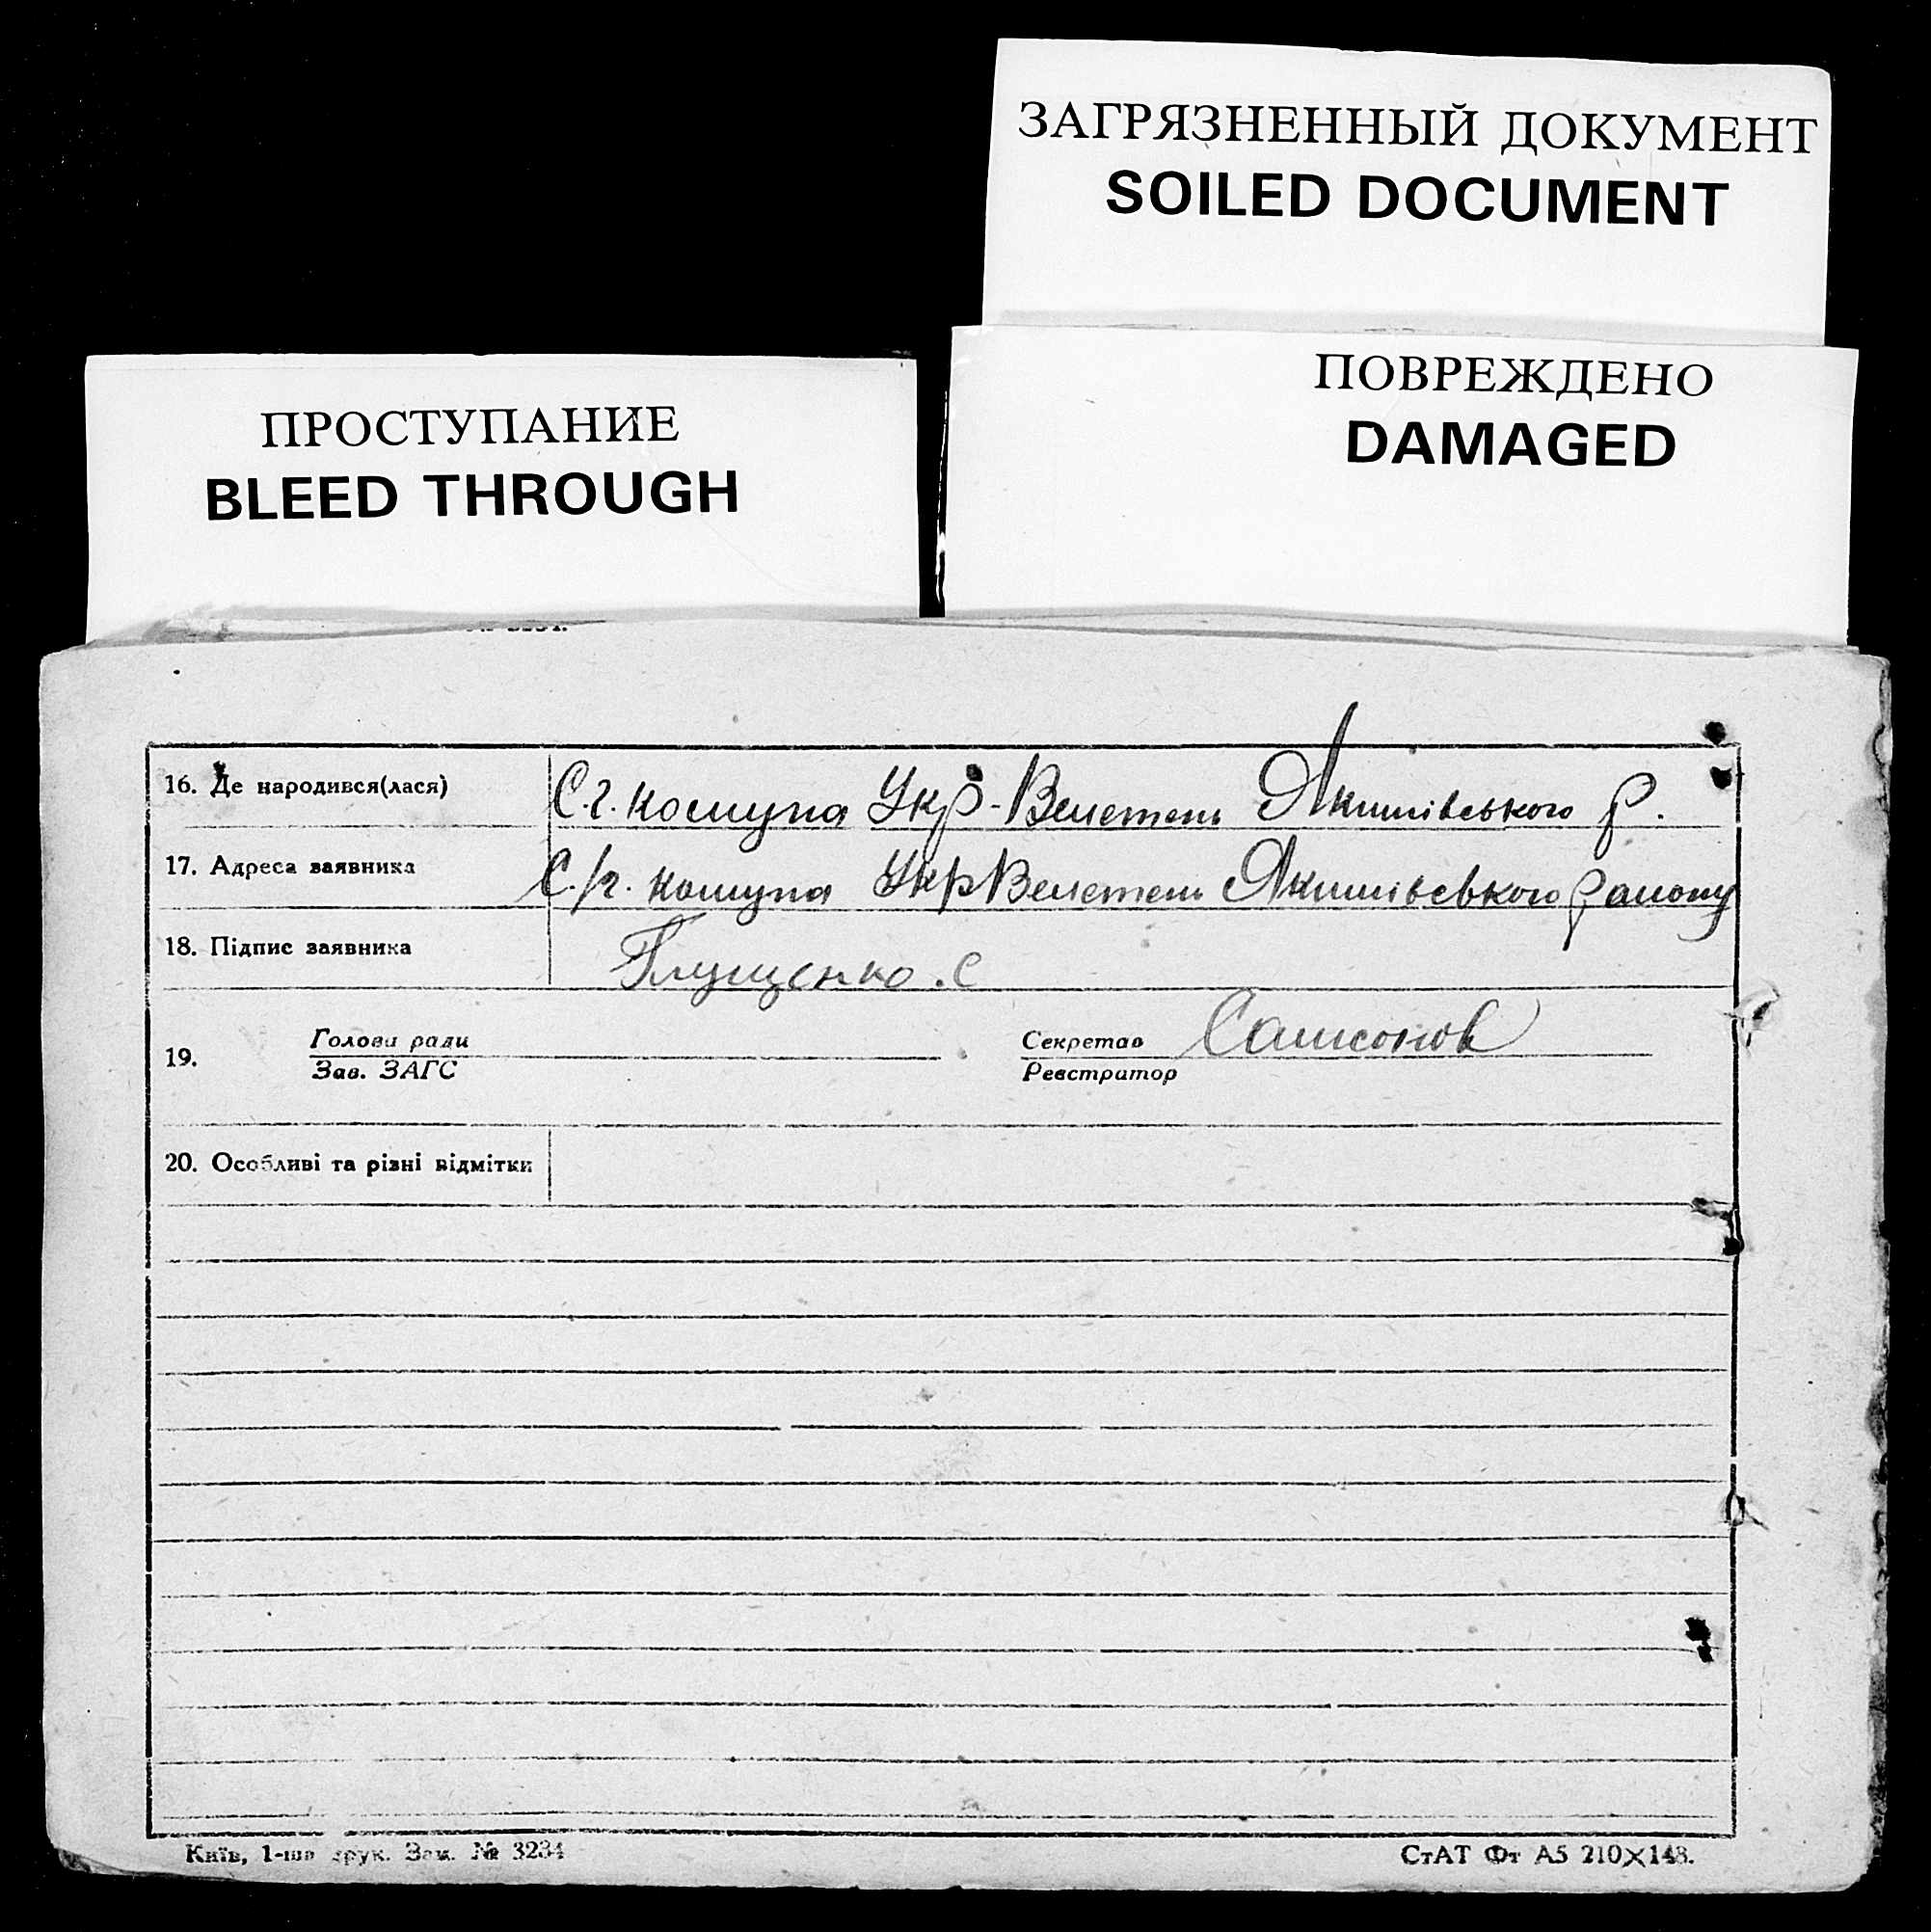 ЗАГРЯЗНЕННЫЙ ДОКУМЕНТ
SOILED DOCUMENT
ПОВРЕЖДЕНО
DAMAGED
ПРОСТУПАНИЕ
BLEED THROUGH
16. Де народився(лася) С.г. комуна Укр-Велетень Якимівського р.
17. Адреса заявника С./г. комуна УкрВелетень Якимівського району
18. Підпис заявника Глущенко. С
19. Голова ради Секретар Самсонов
Зав. ЗАГС Реєстратор
20. Особливі та різні відмітки
Київ, 1-ша друк. Зам. № 3234 СтАТ Фт А5 210×148.